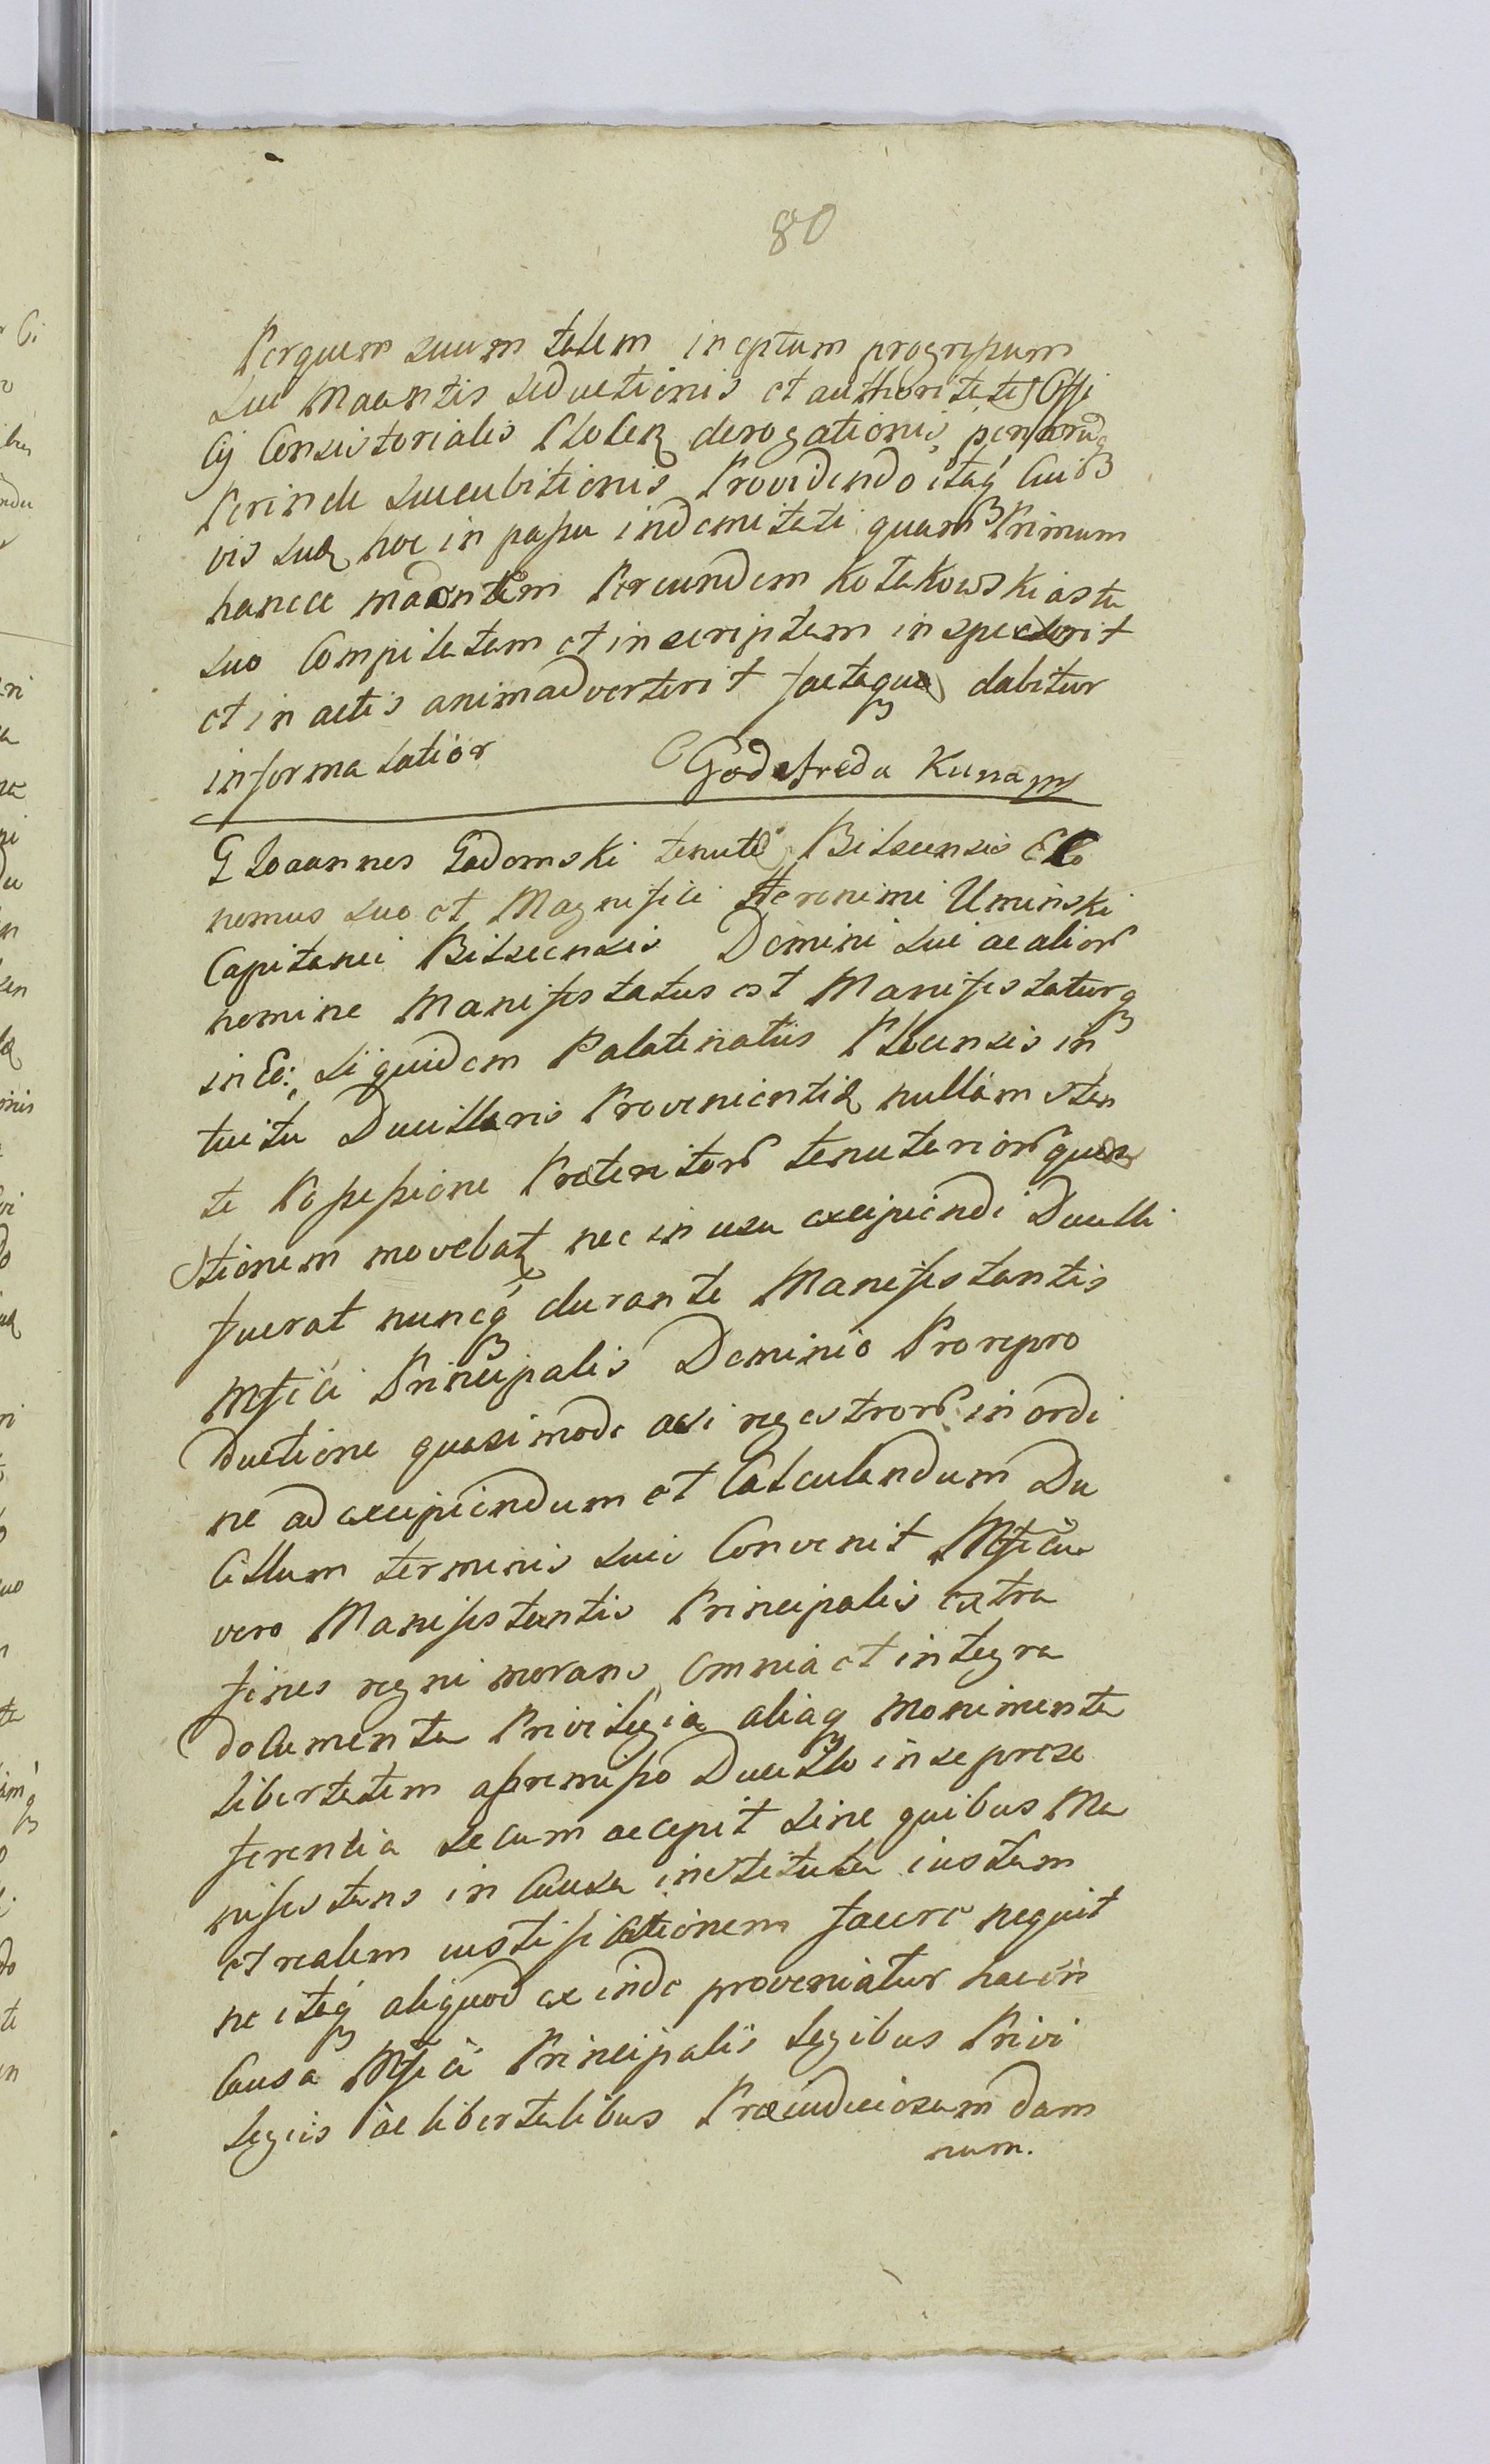 80
Perquem suum talem ineptum progressum
suae Maantis seductionis et authoritatis Offi
Cij Consistorialis Plocen derogationis, penarūq
Perinde succubitionis Providendo itaq́
vis suæ hoc in passu indemnitati quam Primum
hancce maantem Pereundem Kotakowski astu
suo Compilatam et inscriptam inspexerit
et in actis animadverterit factaque dabitur
informa latior Godefreda Kuna mp
G Ioannes Gadomski tenutæ Bilscensis Eco
nomus suo et Magnifici Heronimi Uminski
Capitanei Bilscensis Domini sui ac alior
nomine Manifestatus est Manifestaturq
in Eo: siquidem Palatinatus Plocensis in
tuitu Ducillaris Provenientiæ nullam stan
te Possessione Præteritor tenutarior quæ
stionem movebat nec in usu excipiendi Ducilli
fuerat nuncq́ durante Manifestantis
Mfici Principalis Dominio Pro repro
ductione quasi modo acsi regestror in ordi
ne ad excipiendum et Calculandum Du
Cillum terminis suis Convenit Mficus
vero Manifestantis Principalis extra
fines regni morans omnia et integra
documenta Privilegia aliaq monimenta
libertatem apremisso Ducillo in se præse
ferentia secum accepit sine quibus Ma
nifestans in Causa instituta iustam
et realem iustificationem facere nequit
ne itaq́ aliquod exinde proveniatur hac in
Causa Mfici Principalis legibus Privi
legiis ac libertatibus Præiudiciosum dam
num.